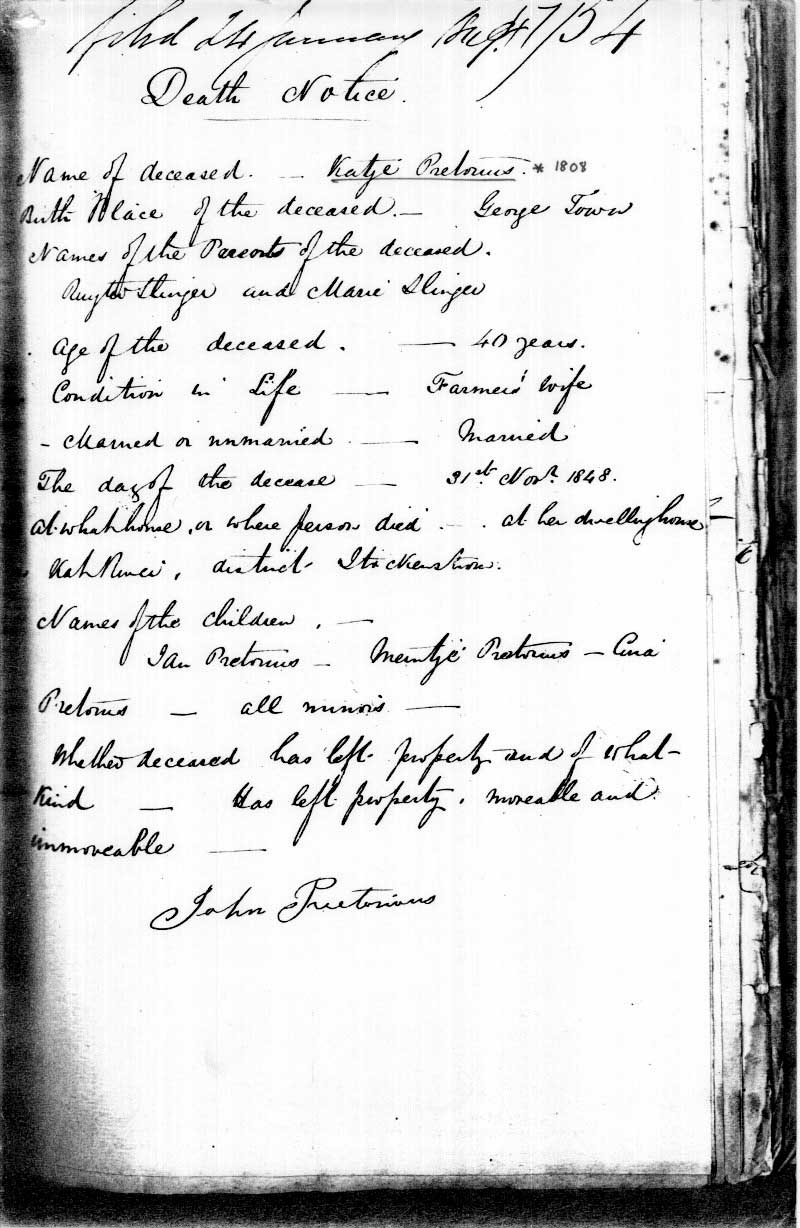 filed 24 January
Death Notice.
Name of deceased. — Katje Pretorius. * 1808
Birth Place of the deceased. — George Town
Names of the Parents of the deceased.
Ruyter Slinger and Marie Slinger
Age of the deceased. — 40 years.
Condition in Life — Farmers' wife
- Married or unmarried — Married
The day of the decease — 31st Novr. 1848.
at what house, or where person died - . at her dwelling house
Kat River, district Stockenstrom.
Names of the children. —
Jan Pretorius — Meintje Pretorius —
Pretorius — all minors —
Whether deceased has left property and of what
kind — Has left property, moveable and
immoveable —
John Pretorious